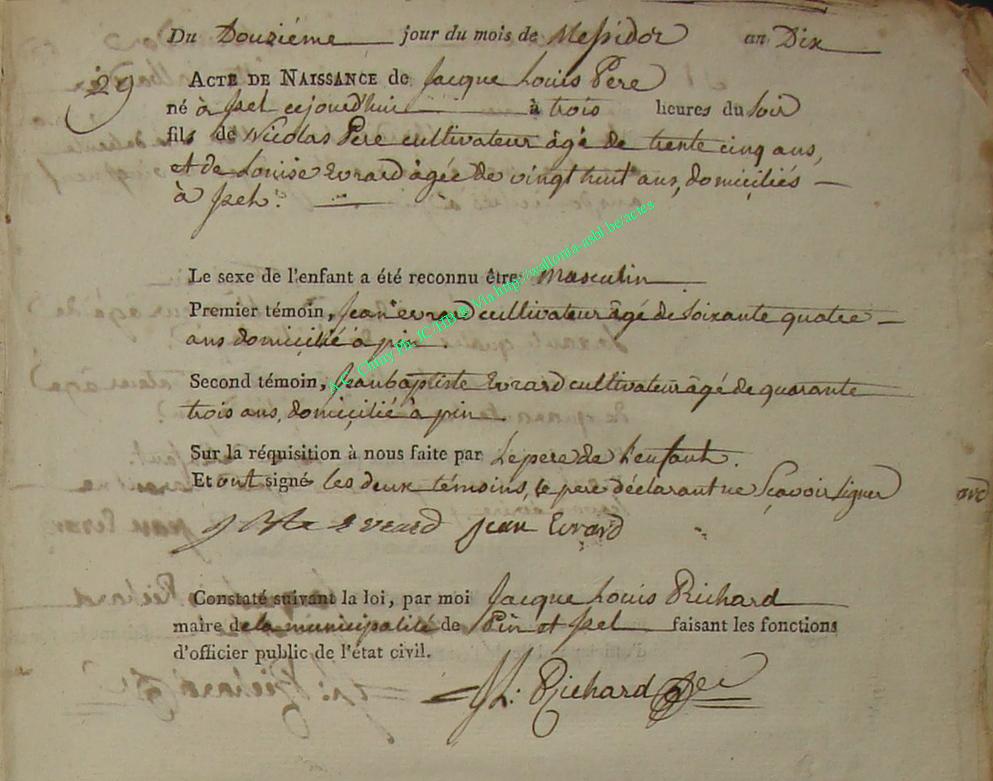 Du Douziéme jour du mois de Messidor an Dix
29 ACTE DE NAISSANCE de Jacque Louis Pere
né à Izel cejourd'huit à trois heures du soir
fils de Nicolas Pere cultivateur âgé de trente cinq ans,
et de Louise Evrard âgée de vingt huit ans, domiciliés
à Izel.
Le sexe de l'enfant a été reconnu être masculin
Premier témoin, jean evrard cultivateur âgé de soixante quatre
ans domicilié à pin.
Second témoin, jean baptiste Evrard cultivateur âgé de quarante
trois ans, domicilié à pin
Sur la réquisition à nous faite par le pere de l'enfant.
Et ont signé les deux témoins, le pere déclarant ne sçavoir signer
Evrard jean Evrard
Constaté suivant la loi, par moi Jacque Louis Richard
maire de la municipalité de Pin et Izel faisant les fonctions
d'officier public de l'état civil.
Richard
Via http://wallonia-asbl.be/actes